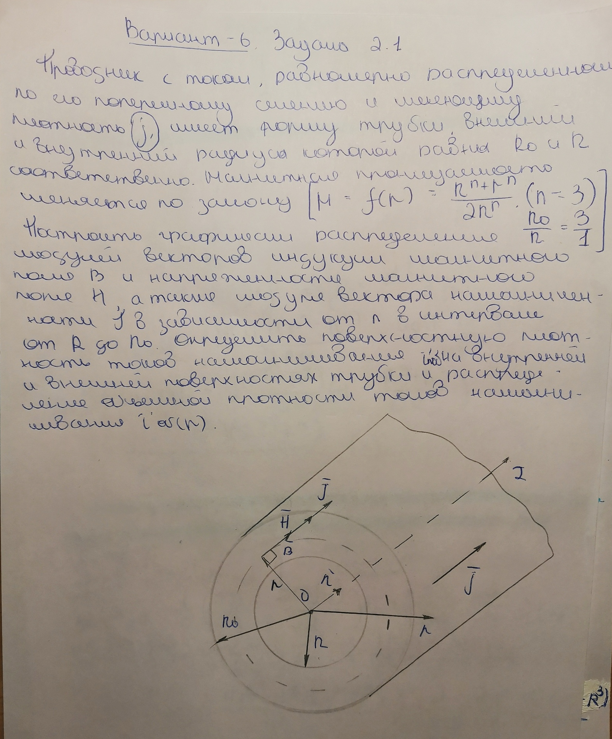 Вариант-6. Задача 2.1
Проводник с током, равномерно распределенном
по его поперечному сечению и имеющему
плотность j, имеет форму трубки, внешний
и внутренний радиусы которой равны R₀ и R
соответственно. Магнитная проницаемость
меняется по закону [μ = f(r) = (Rⁿ+rⁿ)/(2Rⁿ) (n=3) R₀/R = 3/1]
Построить графически распределение
модулей векторов индукции магнитного
поле B и напряженности магнитного
поле H, а также модуле вектора намагничен-
ности J в зависимости от r в интервале
от R до R₀. Определить поверхностную плот-
ность токов намагничивание на внутренней
и внешней поверхностях трубки и распреде-
ление объемной плотности токов намагни-
чивания (r).
I
J
H
B
J
r
n
O
R₀
R
r
R³)